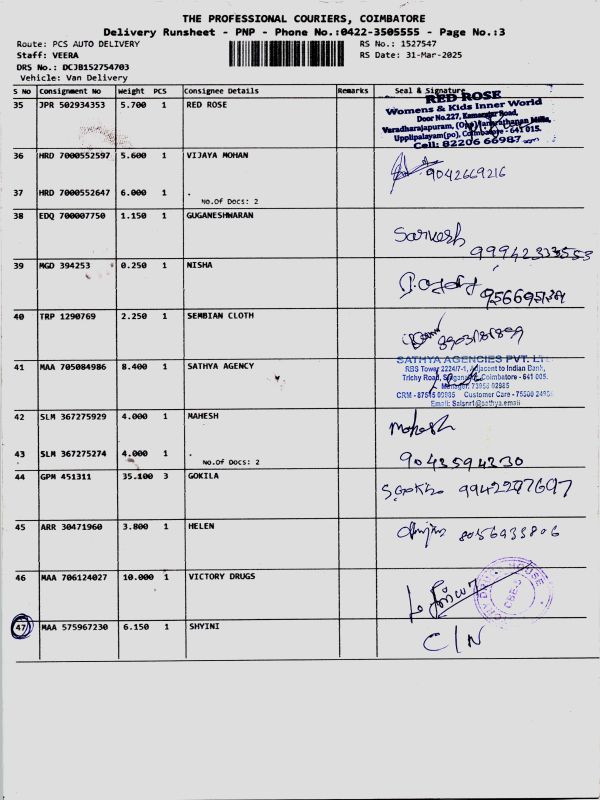 THE PROFESSIONAL COURIERS, COIMBATORE
Delivery Runsheet - PNP - Phone No.:0422-3505555 - Page No.:3
Route: PCS AUTO DELIVERY RS No.: 1527547
Staff: VEERA RS Date: 31-Mar-2025
DRS No.: DCJB152754703
Vehicle: Van Delivery
S No Consignment No Weight PCS Consignee Details Remarks Seal & Signature
35 JPR 502934353 5.700 1 RED ROSE
RED ROSE
Womens & Kids Inner World
Door No.227, Kamarajar Road,
Varadharajapuram,
Upplipalayam(po), Coimbatore - 641 015.
Cell: 82206 66987
36 HRD 7000552597 5.600 1 VIJAYA MOHAN
9042669216
37 HRD 7000552647 6.000 1 .
No.Of Docs: 2
38 EDQ 700007750 1.150 1 GUGANESHWARAN
Sarvesh
39 MGD 394253 0.250 1 NISHA
40 TRP 1290769 2.250 1 SEMBIAN CLOTH
41 MAA 705084986 8.400 1 SATHYA AGENCY
SATHYA AGENCIES PVT. LTD
RBS Tower 2224/7-1, Adjacent to Indian Bank,
Trichy Road, Coimbatore - 641 005.
Manager: 73958 02985
CRM - 87545 02985 Customer Care -
42 SLM 367275929 4.000 1 MAHESH
Mahesh
43 SLM 367275274 4.000 1 .
No.Of Docs: 2
9043594330
44 GPM 451311 35.100 3 GOKILA
9942277697
45 ARR 30471960 3.800 1 HELEN
8056933806
46 MAA 706124027 10.000 1 VICTORY DRUGS
47 MAA 575967230 6.150 1 SHYINI
C/N